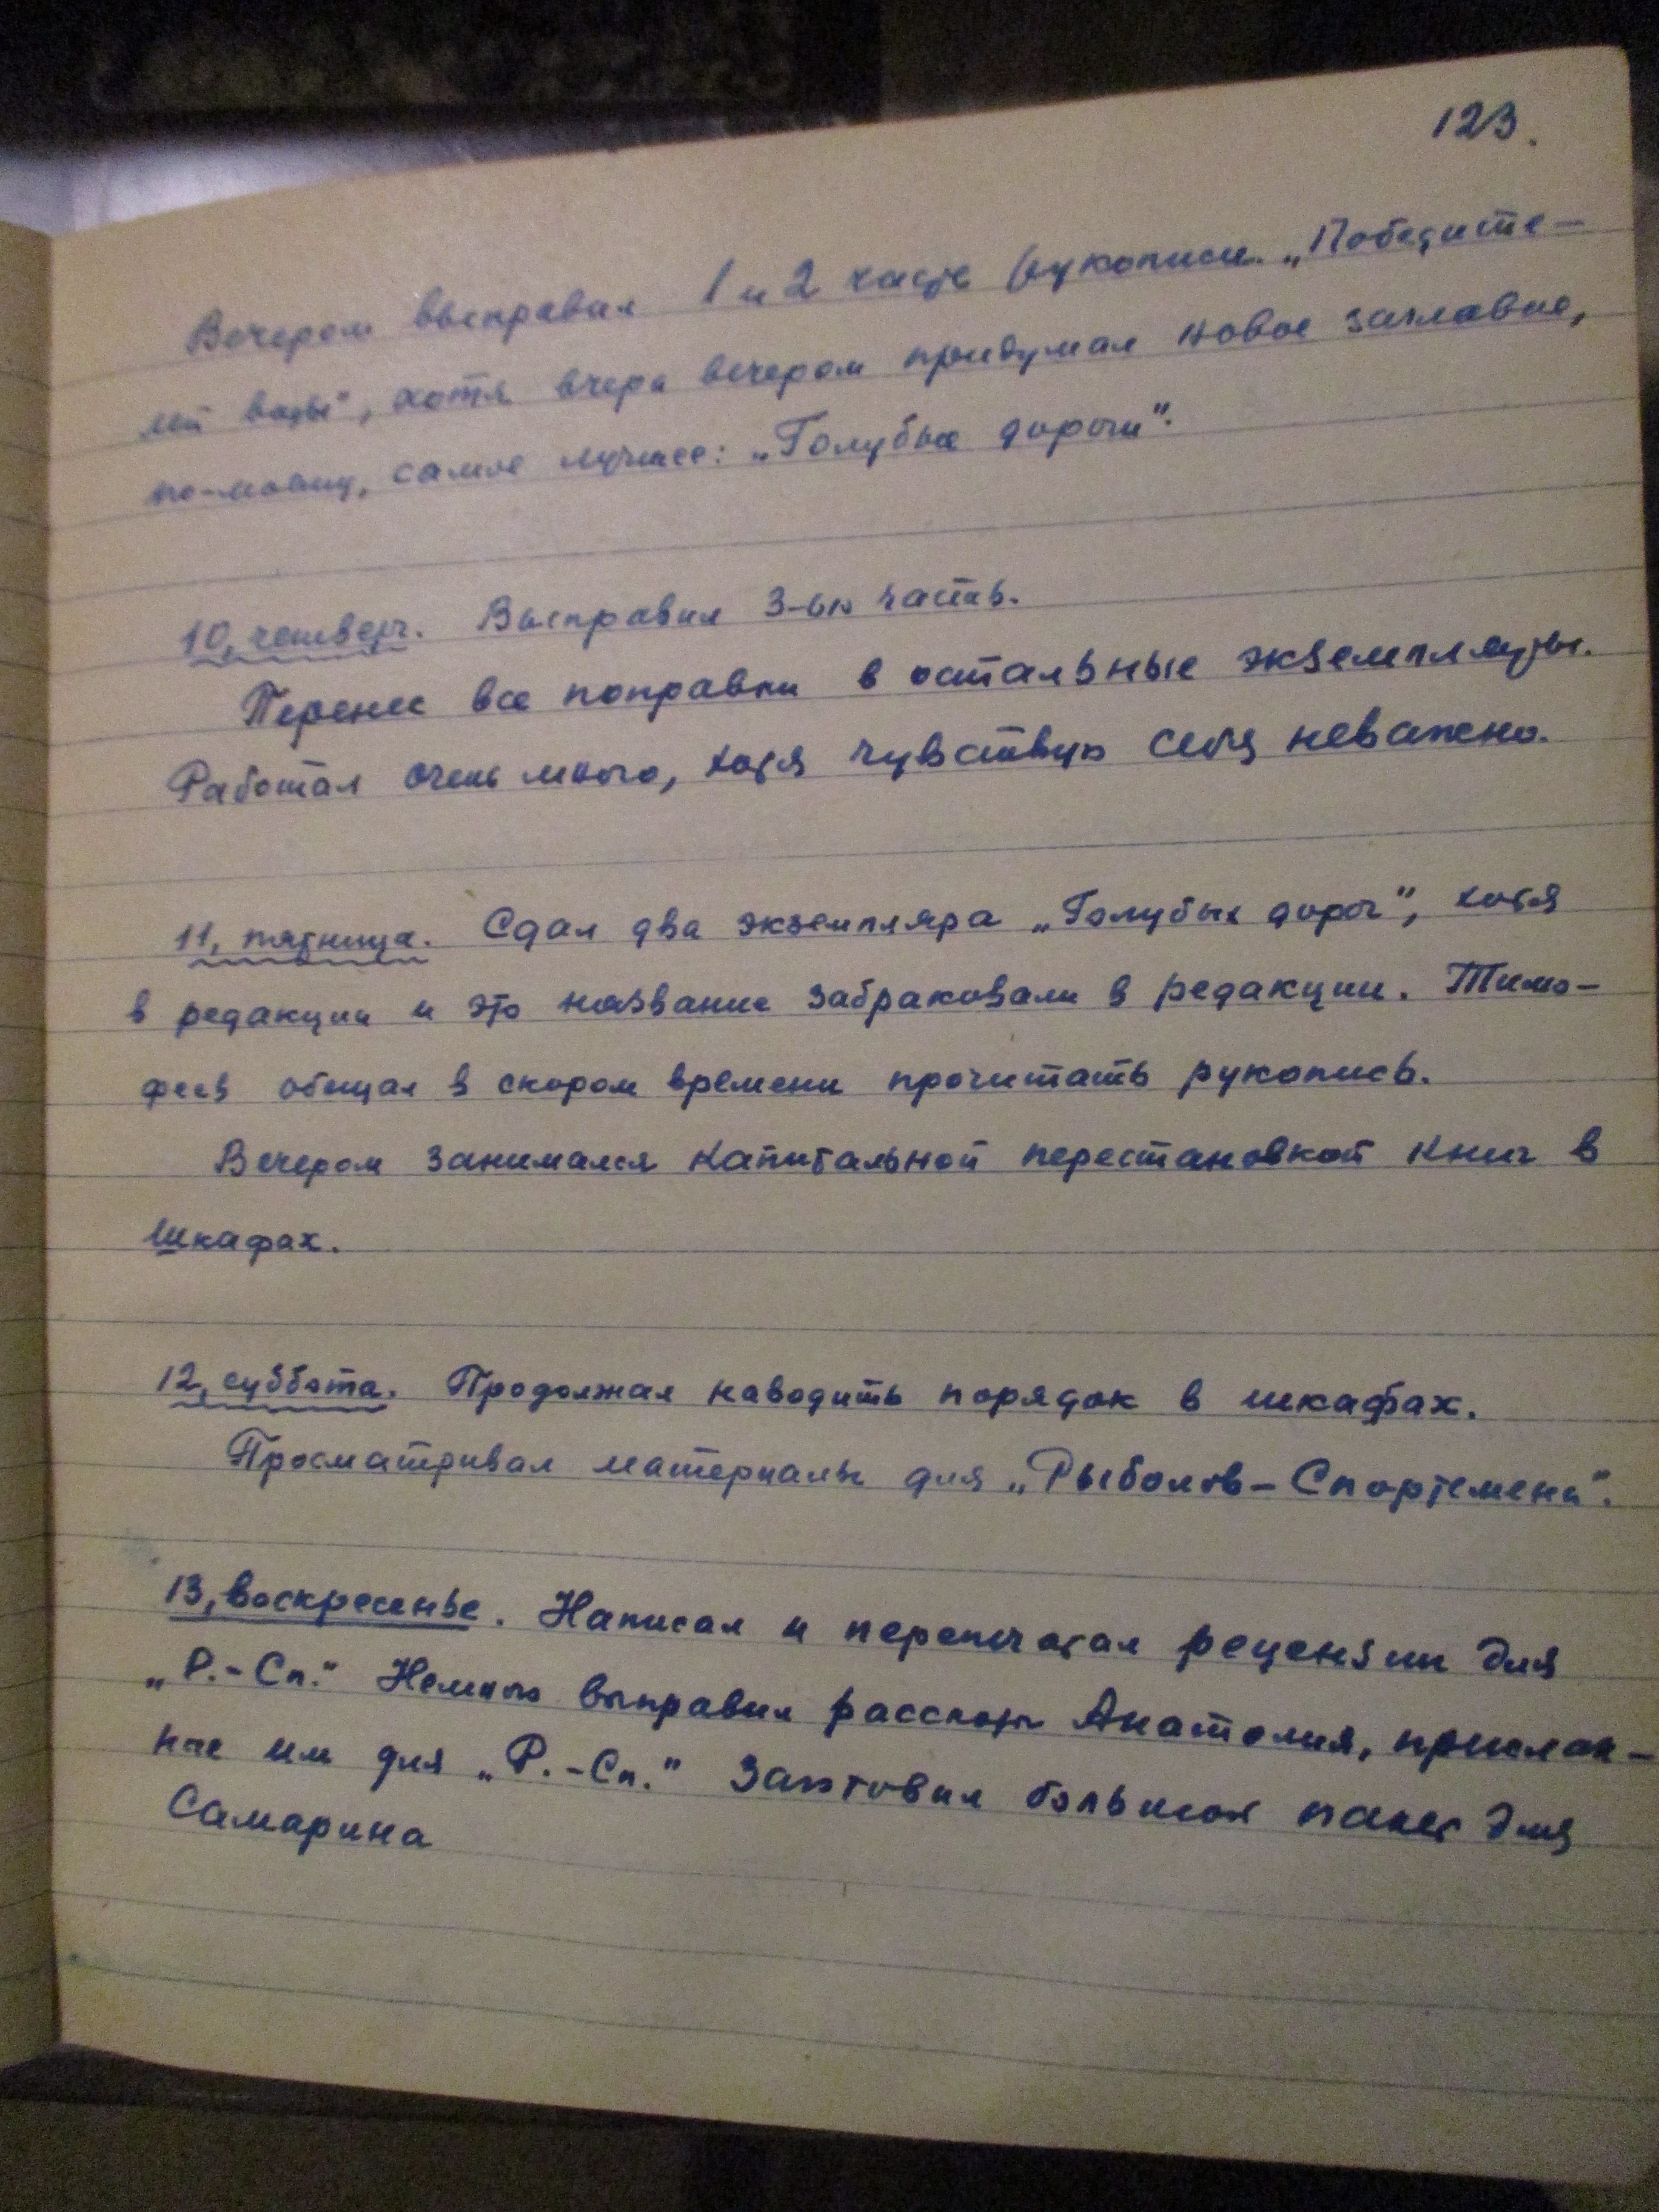 123.
Вечером выправил 1 и 2 часть рукописи „Победите-
лей воды", хотя вчера вечером придумал новое заглавие,
по-моему, самое лучшее: „Голубые дороги".
10, четверг. Выправил 3-ью часть.
Перенес все поправки в остальные экземпляры.
Работал очень много, хотя чувствую себя неважно.
11, пятница. Сдал два экземпляра „Голубых дорог", хотя
в редакции и это название забраковали в редакции. Тимо-
феев обещал в скором времени прочитать рукопись.
Вечером занимался капитальной перестановкой книг в
шкафах.
12, суббота. Продолжал наводить порядок в шкафах.
Просматривал материалы для „Рыболов-Спортсмена".
13, воскресенье. Написал и перепечатал рецензии для
„Р.-Сп." Немного выправил рассказы Анатолия, прислан-
ные им для „Р.-Сп." Заготовил большой пакет для
Самарина